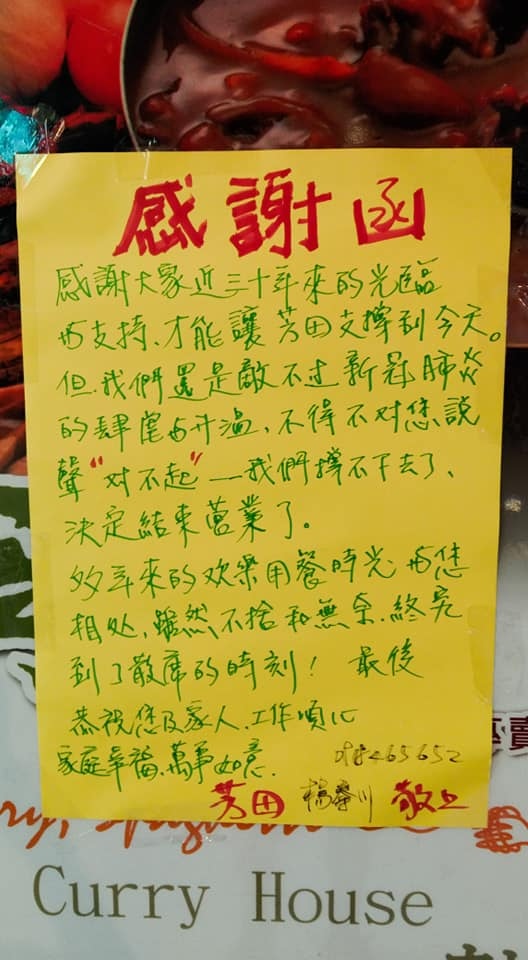 感謝函
感謝大家近三十年來的光臨
与支持、才能讓芳田支撐到今天。
但我們還是敵不过新冠肺炎
的肆虐与升溫、不得不对您説
聲“对不起”—我們撐不下去了、
決定結束營業了。
多年來的欢樂用餐時光与您
相处,雖然不捨和無奈.終究
到了散席的時刻! 最後
恭祝您及家人.工作順心
家庭幸福、萬事如意.
芳田 敬上
賣
Curry House